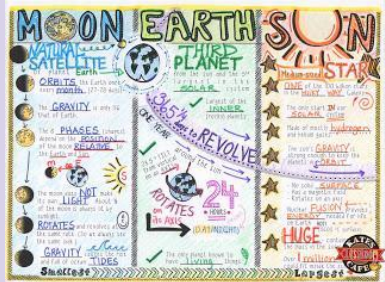 MOON EARTH SUN
NATURAL
SATELLITE
of planet Earth
ORBITS the Earth
every month. (27-28 days)
The GRAVITY is only 1/6
that of Earth.
The 8 PHASES (shapes)
depend on the POSITION
of the moon RELATIVE to
the Earth and sun.
The moon does NOT make
its own LIGHT. About
of the moon is always lit by
sunlight.
ROTATES and revolves at
the same rate. We always see
the same side.
GRAVITY causes the rise
and fall of ocean TIDES
Smallest
THIRD
PLANET
from the sun and the 5th
largest in the
SOLAR system
Largest of the
INNER
planets.
365¼
days to REVOLVE
ONE YEAR
around the sun
ROTATES
on its AXIS
24
HOURS
(DAY/NIGHT)
The only planet known to
have living things
Medium-sized STAR
ONE of the 100 billion stars
in the MILKY WAY Galaxy.
The only star IN our
SOLAR system
Made of mostly hydrogen
and helium
The sun's GRAVITY is
strong enough to keep the
planets in ORBIT
No solid SURFACE
Has a magnetic field
Nuclear FUSION
ENERGY
HUGE
Over 1 million
Largest
KATE'S
CLASSROOM
CAFE